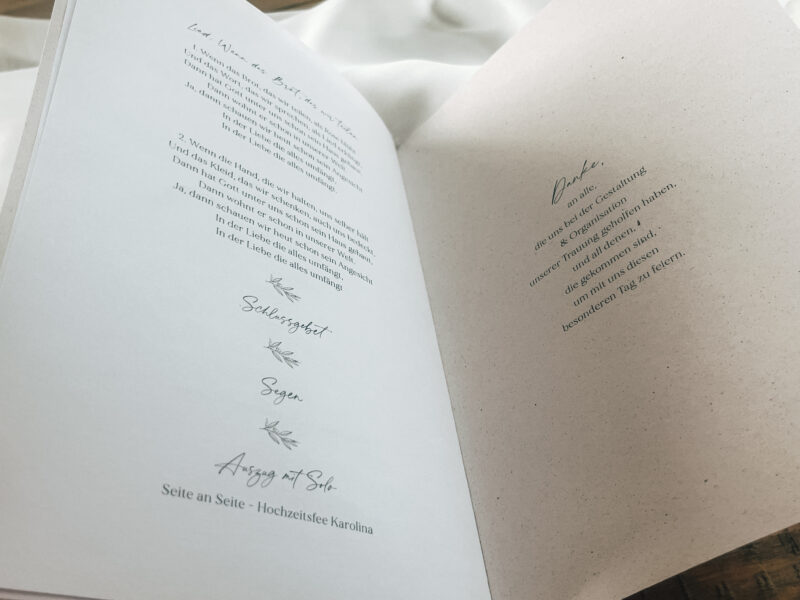 Lied: Wenn das Brot, das wir teilen
1. Wenn das Brot, das wir teilen, als Rose blüht
Und das Wort, das wir sprechen, als Lied erklingt
Dann hat Gott unter uns schon sein Haus gebaut
Dann wohnt er schon in unserer Welt.
Ja, dann schauen wir heut schon sein Angesicht
In der Liebe die alles umfängt,
In der Liebe die alles umfängt.
2. Wenn die Hand, die wir halten, uns selber hält
Und das Kleid, das wir schenken, auch uns bedeckt
Dann hat Gott unter uns schon sein Haus gebaut,
Dann wohnt er schon in unserer Welt.
Ja, dann schauen wir heut schon sein Angesicht
In der Liebe die alles umfängt,
In der Liebe die alles umfängt
Schlussgebet
Segen
Auszug mit Solo
Seite an Seite - Hochzeitsfee Karolina
Danke,
an alle,
die uns bei der Gestaltung
& Organisation
unserer Trauung geholfen haben,
und all denen,
die gekommen sind,
um mit uns diesen
besonderen Tag zu feiern.